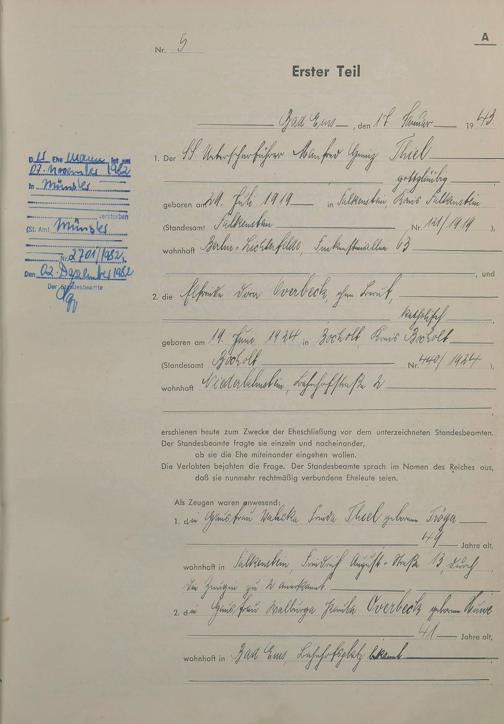 A
Nr. 5
Erster Teil
Bad Ems, den 17. Januar 1943.
1. Der SS Unterscharführer Manfred Georg Thiel
gottgläubig
geboren am 21. Juli 1919 in Falkenstein, Kreis Falkenstein
(Standesamt Falkenstein Nr. 121/1919),
wohnhaft Berlin-Lichterfelde, Finkensteinallee 63
, und
2. die Elfriede Dora Overbeck, ohne Beruf,
katholisch
geboren am 19. Juni 1924 in Bocholt, Kreis Bocholt
(Standesamt Bocholt Nr. 440/1924),
wohnhaft Niederlahnstein, Bahnhofstraße 2
erschienen heute zum Zwecke der Eheschließung vor dem unterzeichneten Standesbeamten.
Der Standesbeamte fragte sie einzeln und nacheinander,
ob sie die Ehe miteinander eingehen wollen.
Die Verlobten bejahten die Frage. Der Standesbeamte sprach im Namen des Reiches aus,
daß sie nunmehr rechtmäßig verbundene Eheleute seien.
Als Zeugen waren anwesend:
1. die Ehefrau Frieda Thiel geborene
49 Jahre alt,
wohnhaft in Falkenstein, Friedrich August-Straße 13, durch
die Zeugin zu 2 anerkannt.
2. die Ehefrau Walburga Overbeck geborene
41 Jahre alt,
wohnhaft in Bad Ems, Bahnhofsplatz bekannt
D er Ehe Mann ist am
07. November 1982
in Münster
verstorben
(St. Amt Münster
Nr. 2701/1982)
Den 02. Dezember 1982
Der Standesbeamte